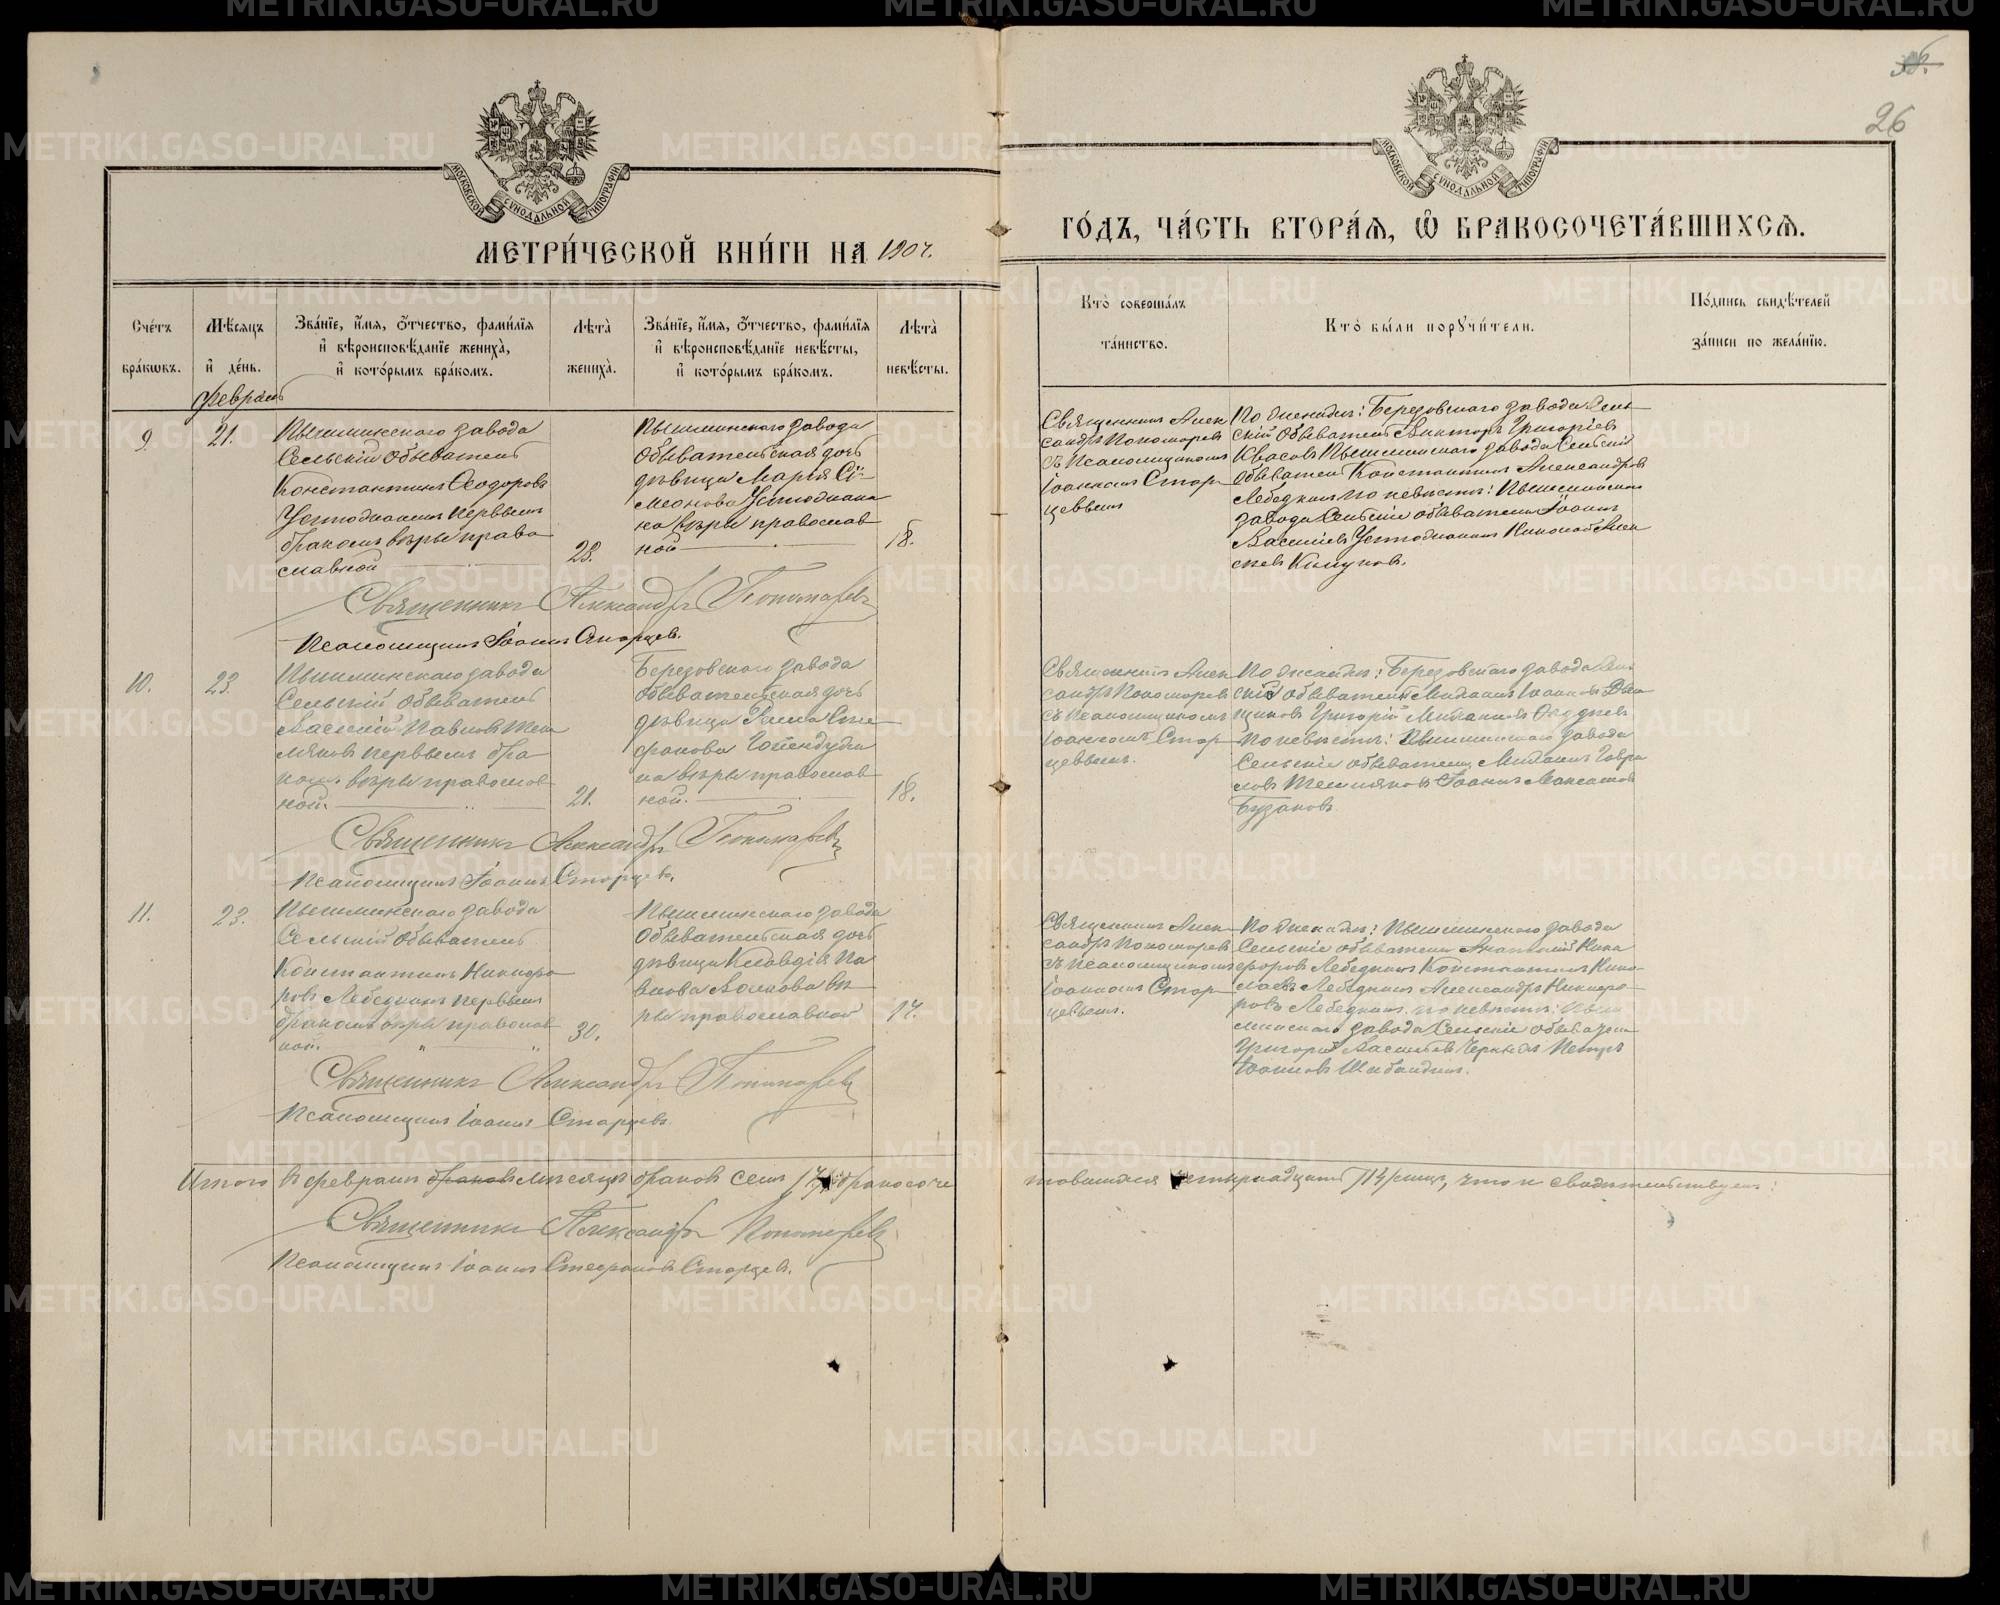 26
МОСКОВСКОЙ СУНОДАЛЬНОЙ ТИПОГРАФІИ
МОСКОВСКОЙ СУНОДАЛЬНОЙ ТИПОГРАФІИ
МЕТРИ́ЧЕСКОЙ КНИ́ГИ НА 1904.
ГО́ДЪ, ЧА́СТЬ ВТОРА́Я, Ѡ БРАКОСОЧЕТА́ВШИХСЯ.
Сче́тъ
бра́кѡвъ.
Мѣ́сяцъ
и де́нь.
Зва́нїе, и́мя, ѻ́тчество, фами́лїя
и вѣроисповѣ́данїе жениха̀,
и кото́рымъ бра́комъ.
Лѣ́та
жениха̀.
Зва́нїе, и́мя, ѻ́тчество, фами́лїя
и вѣроисповѣ́данїе невѣ́сты,
и кото́рымъ бра́комъ.
Лѣ́та
невѣ́сты.
Кто̀ соверша́лъ
та́инство.
Кто̀ бы́ли порꙋчи́тели.
По́дпись свидѣ́телей
за́писи по жела́нїю.
Февраль
9.
21.
Пышминскаго завода
Сельскій обыватель
Константинъ Ѳеодоровъ
Устюжанинъ первымъ
бракомъ вѣры право
славной
28.
Пышминскаго завода
обывательская дочь
дѣвица Марія Сі-
меонова Устюжани
на вѣры православ
ной
18.
Священникъ Алек
сандръ Пономаревъ
съ Псаломщикомъ
Іоанномъ Стар
цевымъ
По женихѣ: Березовскаго завода Сель
скій обыватель Викторъ Григоріев
Квасовъ Пышминскаго завода Сельскій
обыватель Константинъ Александров
Лебедкинъ по невѣстѣ: Пышминскаго
завода Сельскіе обыватели Іоаннъ
Василіев Устюжанинъ Николай Алек
сѣев
Священникъ Александръ Пономаревъ
Псаломщикъ Іоаннъ Старцев.
10.
23.
Пышминскаго завода
Сельскій обыватель
Василій Павловъ Теп
ляковъ первымъ бра
комъ вѣры православ
ной.
21.
Березовскаго завода
обывательская дочь
дѣвица Сте
фанова
на вѣры православ
ной.
18.
Священникъ Алек
сандръ Пономаревъ
съ Псаломщикомъ
Іоанномъ Стар
цевымъ.
По женихѣ: Березовскаго завода Сель
скій обыватель Михаилъ Іоанновъ
Григорій Михаиловъ
По невѣстѣ: Пышминскаго завода
Сельскіе обыватели Михаилъ Гаври
ловъ Тепляковъ Іоаннъ
Бузановъ
Священникъ Александръ Пономаревъ
Псаломщикъ Іоаннъ Старцевъ.
11.
23.
Пышминскаго завода
Сельскій обыватель
Константинъ Никифо
ровъ Лебедкинъ первымъ
бракомъ вѣры православ
ной.
30.
Пышминскаго завода
обывательская дочь
дѣвица Клавдія Па
влова вѣ
ры православной
17.
Священникъ Алек
сандръ Пономаревъ
съ Псаломщикомъ
Іоанномъ Стар
цевымъ.
По женихѣ: Пышминскаго завода
Сельскіе обыватели Анатолій Ники
форовъ Лебедкинъ Константинъ Нико
лаевъ Лебедкинъ Александръ Никифо
ровъ Лебедкинъ. по невѣстѣ: Пыш
минскаго завода Сельскіе обыватели
Григорій Василіевъ Черныхъ Петръ
Іоанновъ
Священникъ Александръ Пономаревъ
Псаломщикъ Іоаннъ Старцевъ.
Итого въ февралѣ мѣсяцѣ браковъ семь /7/ бракосоче
тавшихся четырнадцать /14/ лицъ, что и свидѣтельствуемъ:
Священникъ Александръ Пономаревъ
Псаломщикъ Іоаннъ Стефановъ Старцевъ.
METRIKI.GASO-URAL.RU